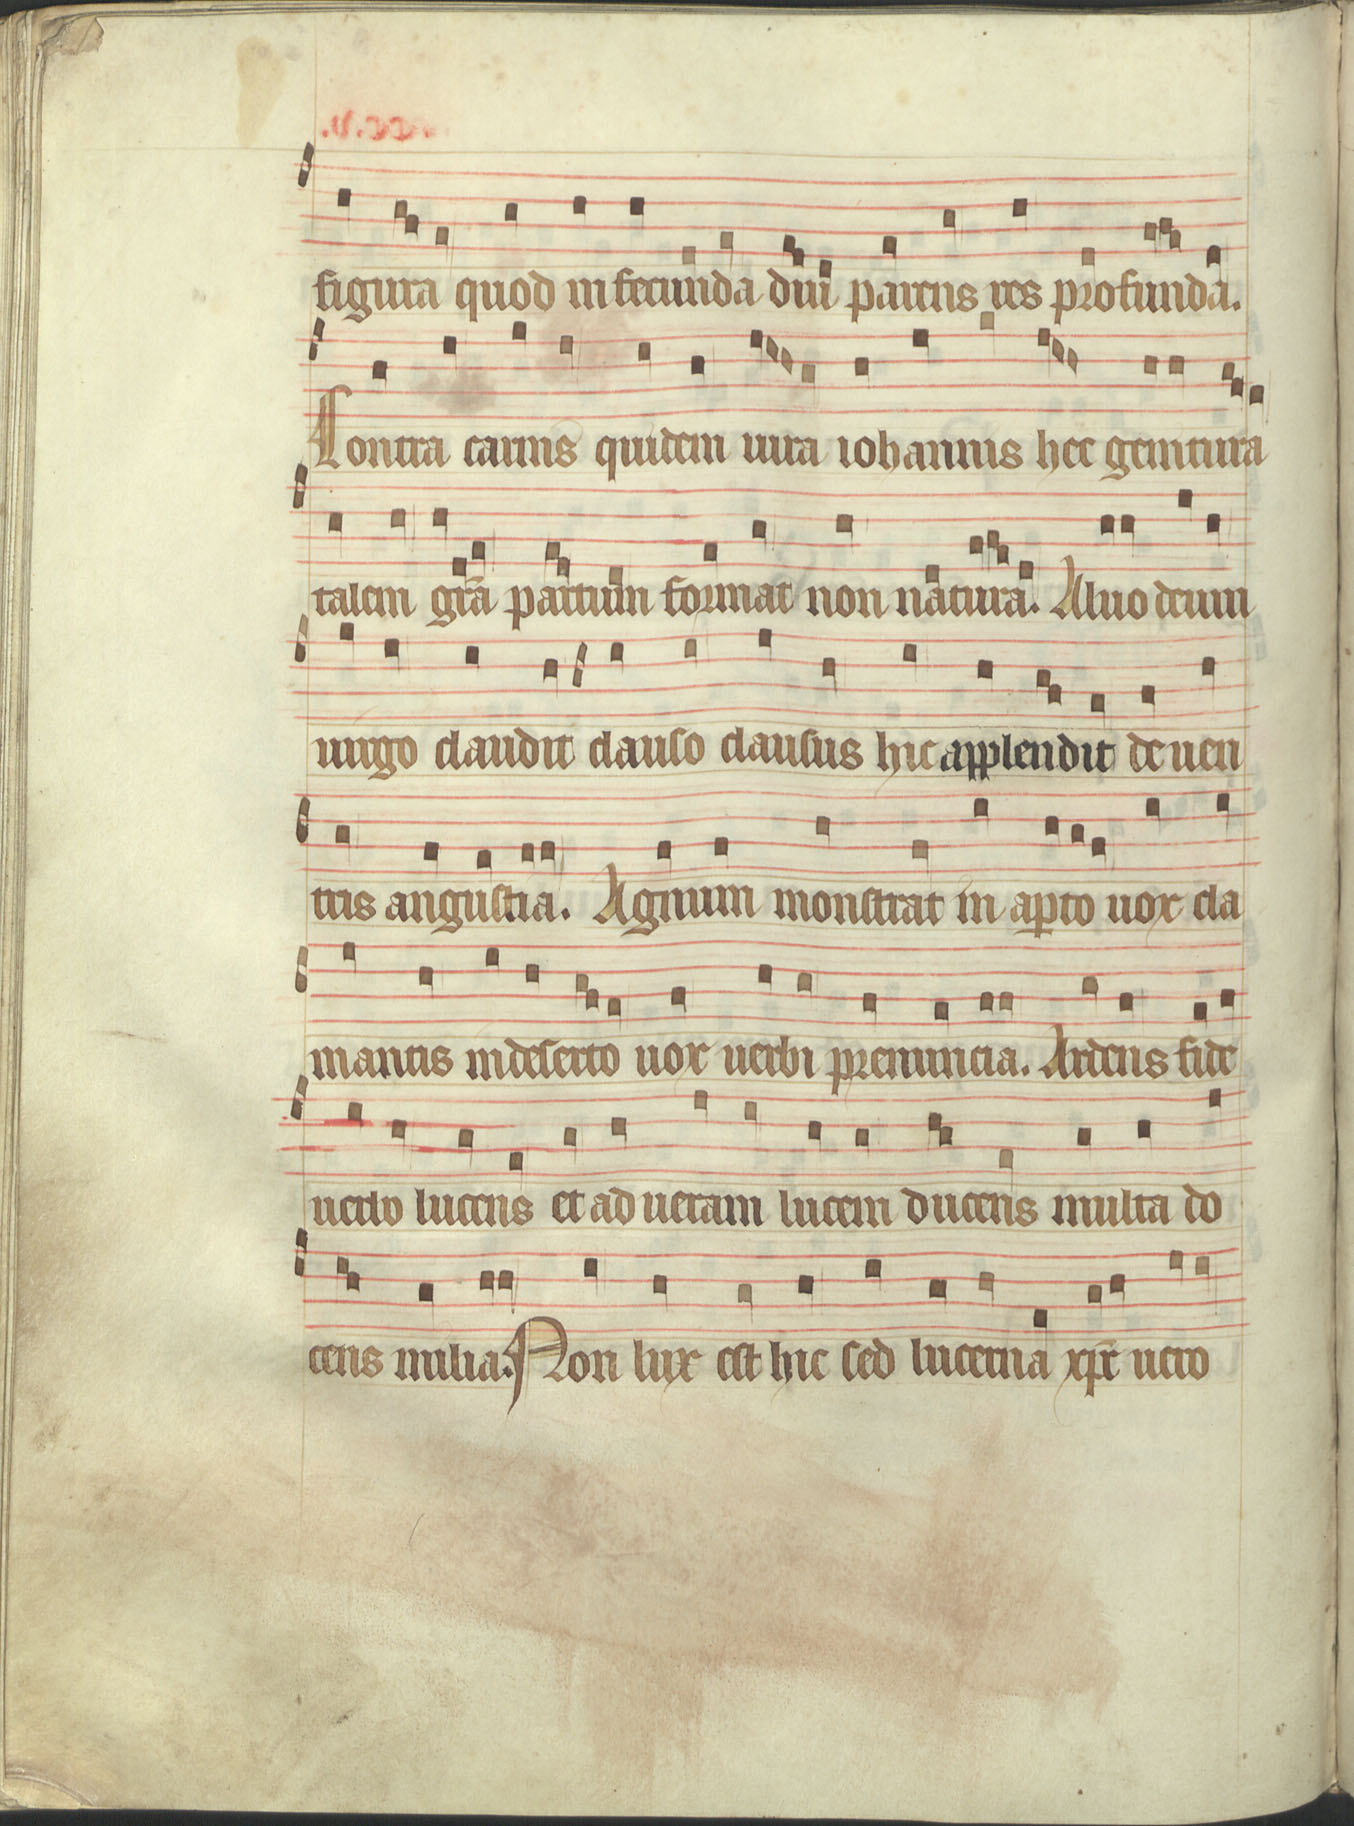 figura quod infecunda diu parens res profunda.
Contra carnis quidem iura iohannis hec genitura
talem gr̄a partum format non natura. Aluo deum
uirgo claudit clauso clausus hic applendit de uen
tris angustia. Agnum monstrat in apto uox cla
mantis indeserto uox uerbi prenuncia. Ardens fide
uerbo lucens et ad ueram lucem ducens multa do
cens milia. Non lux est hic sed lucerna xp̄c uero